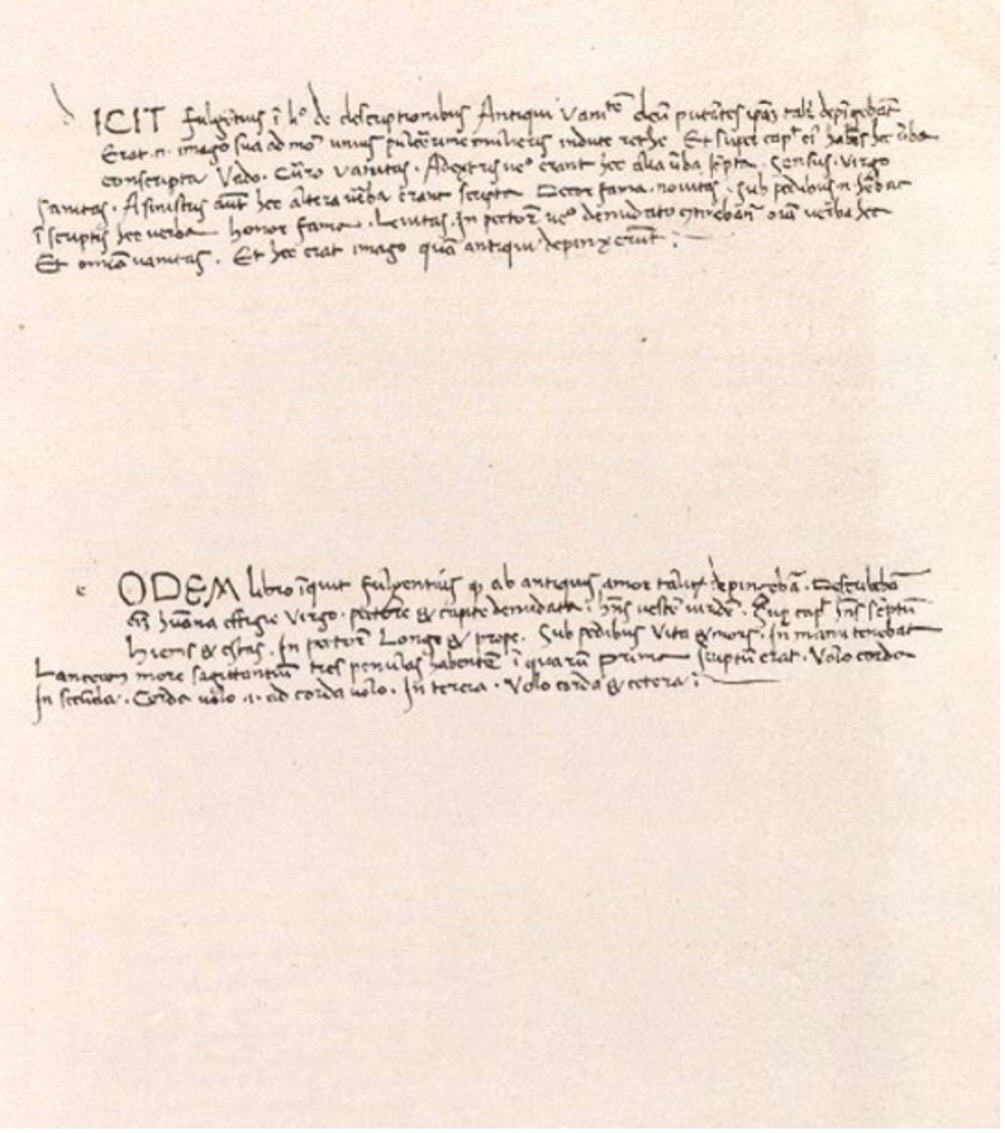 d ICIT fulgẽtius ĩ li° de descriptionibus Antiqui vanitẽ deũ putãtes ipãʒ tali depĩgebãt
Erat .n. imago sua ad moᵐ unius pulcẽrime mulieris indute rethe Et super capᵗ eiˢ habẽs hec ũba
conscripta Vado. Cũro vanitas. Adextris ueº erant hec alia ũba sc̃pta. Sensus. virgo
Sanitas. Asinistris aũt hec altera uẽba erant scripta Decor fama. novitas. Sub pedibus .n. hẽbat
ĩ scriptis hec verba honor fama. Levitas. In pectorẽ ueº denudato 9tinebãtr̃ oĩa verba hec
Et omĩa vanitas. Et hec erat imago quã antiqui depinxerũt :
e ODEM libro ĩquit fulgentius ꝙ ab antiquis amor taliter depingebã. Desculebã
hũana effigie Virgo. pectore & capite denudata. hñs vestẽ viridẽ. Sup capᵗ hñs sc̃ptũ
hiems & estas. In pectorẽ Longe & prope. Sub pedibus Vita & mors. In manu tenebat
Lanceam more sagittantiũ tres penulas habentẽ ĩ quarũ prima scriptũ erat. Volo corda
In secũda. Corda uolo .i. ad corda uolo. In tercia. Volo corda & cetera :